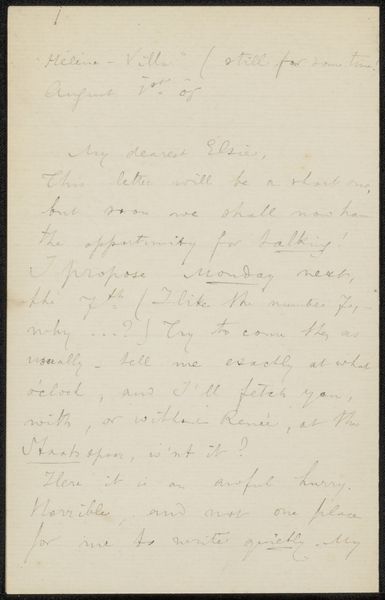 "Hélène-Villa" (still for some time!
August 1st. 05
My dearest Elsie,
This letter will be a short one,
but soon we shall now have
the opportunity for talking!
I propose Monday next,
the 7th (I like the number 7,-
why ...?) Try to come then as
usually - tell me exactly at what
o'clock, and I'll fetch you,
with, or without Renée, at the
Staatsspoor, is'nt it?
Here it is an awful hurry.
Horrible, and not one place
for me to write quietly. My